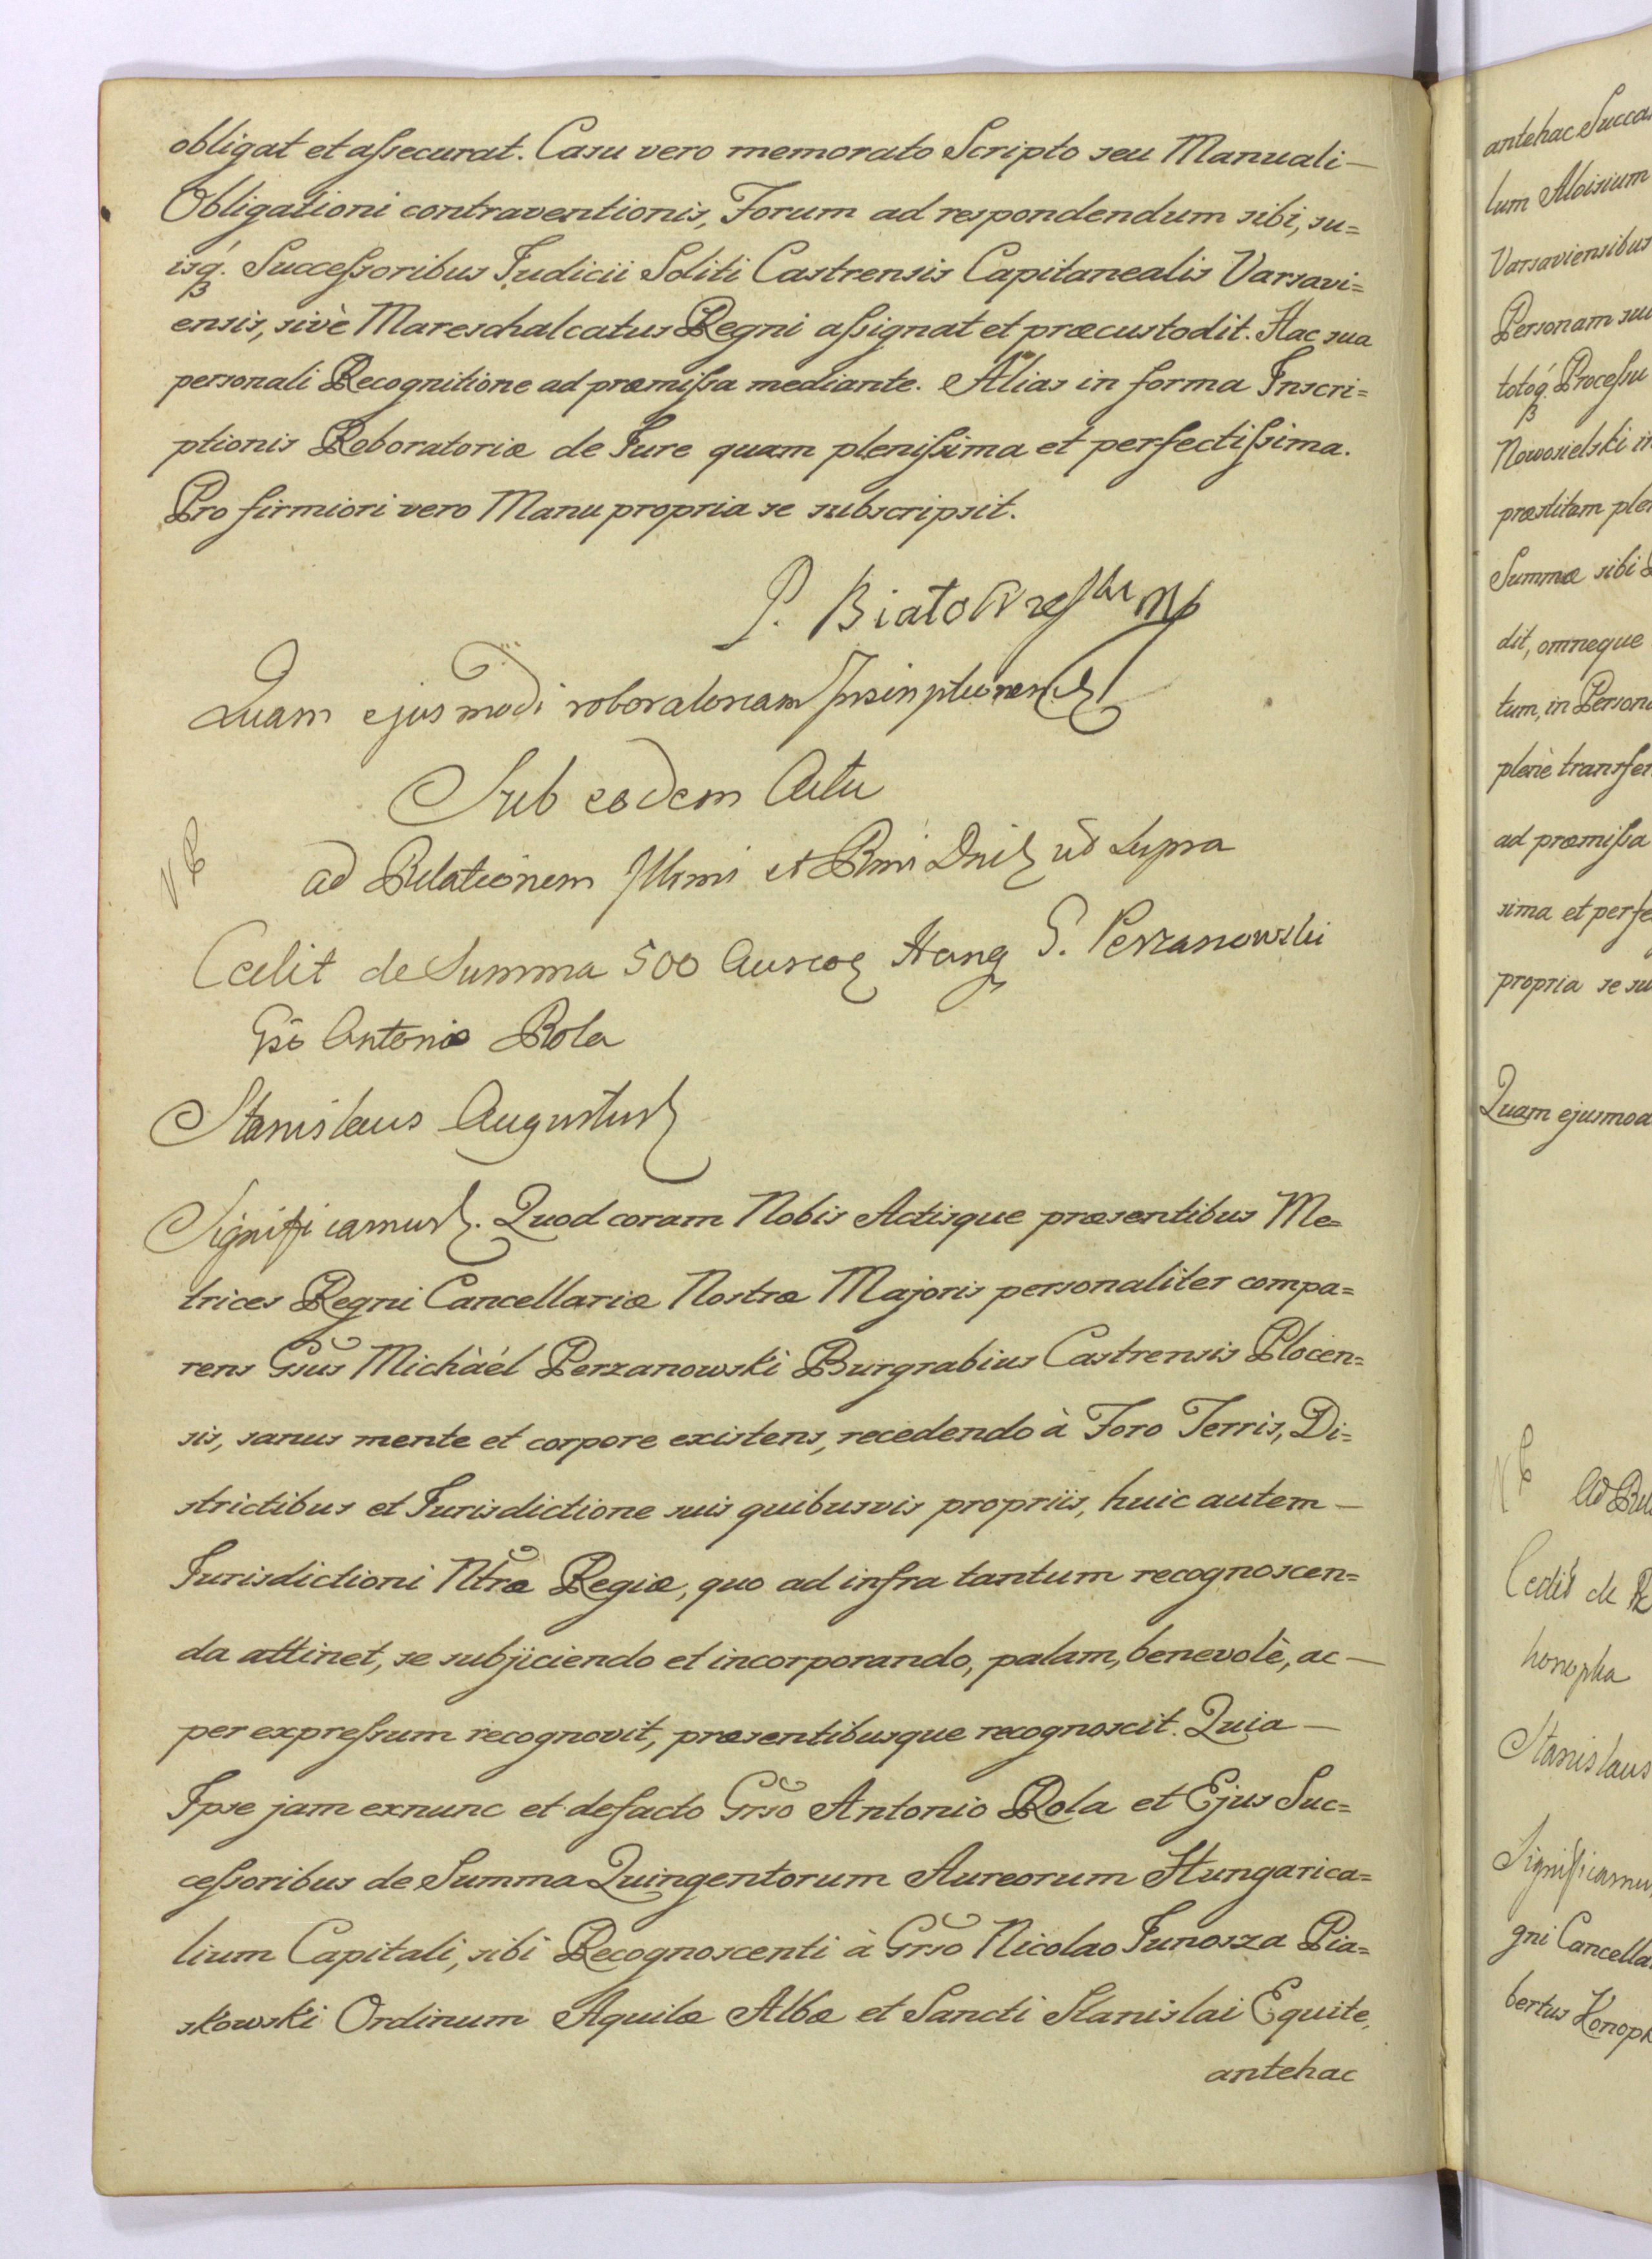 obligat et aſsecurat. Casu vero memorato Scripto seu Manuali —
Obligationi contraventionis, Forum ad respondendum sibi, su=
isq́. Succeſsoribus Judicii Soliti Castrensis Capitanealis Varsavi=
ensis, sivè Mareschalcatus Regni aſsignat et præcustodit. Hac sua
personali Recognitione ad præmiſsa mediante. Alias in forma Inscri=
ptionis Roboratoriæ de Jure quam pleniſsima et perfectiſsima.
Pro firmiori vero Manu propria se subscripsit.
P. mp
Quam ejusmodi roboratoriam Inscriptionem
Sub eodem Actu
ad Relationem Illmi et Rmi Dni ut supra
Cedit de Summa 500 Aureor Hung G. Perzanowski
Gso Antonio Rola
Stanislaus Augustus
Significamus. Quod coram Nobis Actisque præsentibus Me=
trices Regni Cancellariæ Nostræ Majoris personaliter compa=
rens Gsus Michàél Perzanowski Burgrabius Castrensis Plocen=
sis, sanus mente et corpore existens, recedendo à Foro Terris, Di=
strictibus et Jurisdictione suis quibusvis propriis, huic autem —
Jurisdictioni Ntræ Regiæ, quo ad infra tantum recognoscen=
da attinet, se subjiciendo et incorporando, palam, benevolè, ac —
per expreſsum recognovit, præsentibusque recognoscit. Quia —
Ipse jam exnunc et defacto Grso Antonio Rola et Ejus Suc=
ceſsoribus de Summa Quingentorum Aureorum Hungarica=
lium Capitali, sibi Recognoscenti à Grso Nicolao Junosza Pia=
skowski Ordinum Aquilæ Albæ et Sancti Stanislai Equite,
antehac
antehac
lum Aloisium
Varsaviensibus
Personam
totóq́. Proceſsu
Nowosielski
præstitam
Summæ sibi
dit, omneque
tum, in
plenè
ad præmiſsa
sima et
propria se
Quam
Cedit de
Stanislaus
gni
bertus